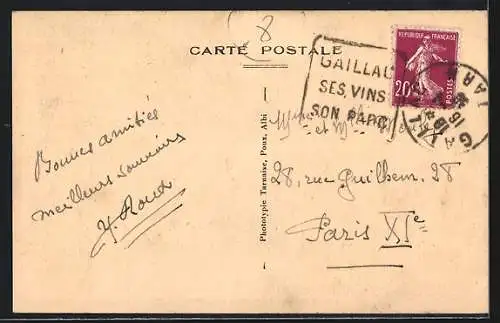 8
CARTE POSTALE
GAILLAC
SES VINS
SON PARC
REPUBLIQUE FRANÇAISE
20c
POSTES
TARN
Bonnes amitiés
meilleurs souvenirs
Y. Roux
Phototypie Tarnaise, Poux, Albi
et
28, rue Guilhem, 28
Paris XIe